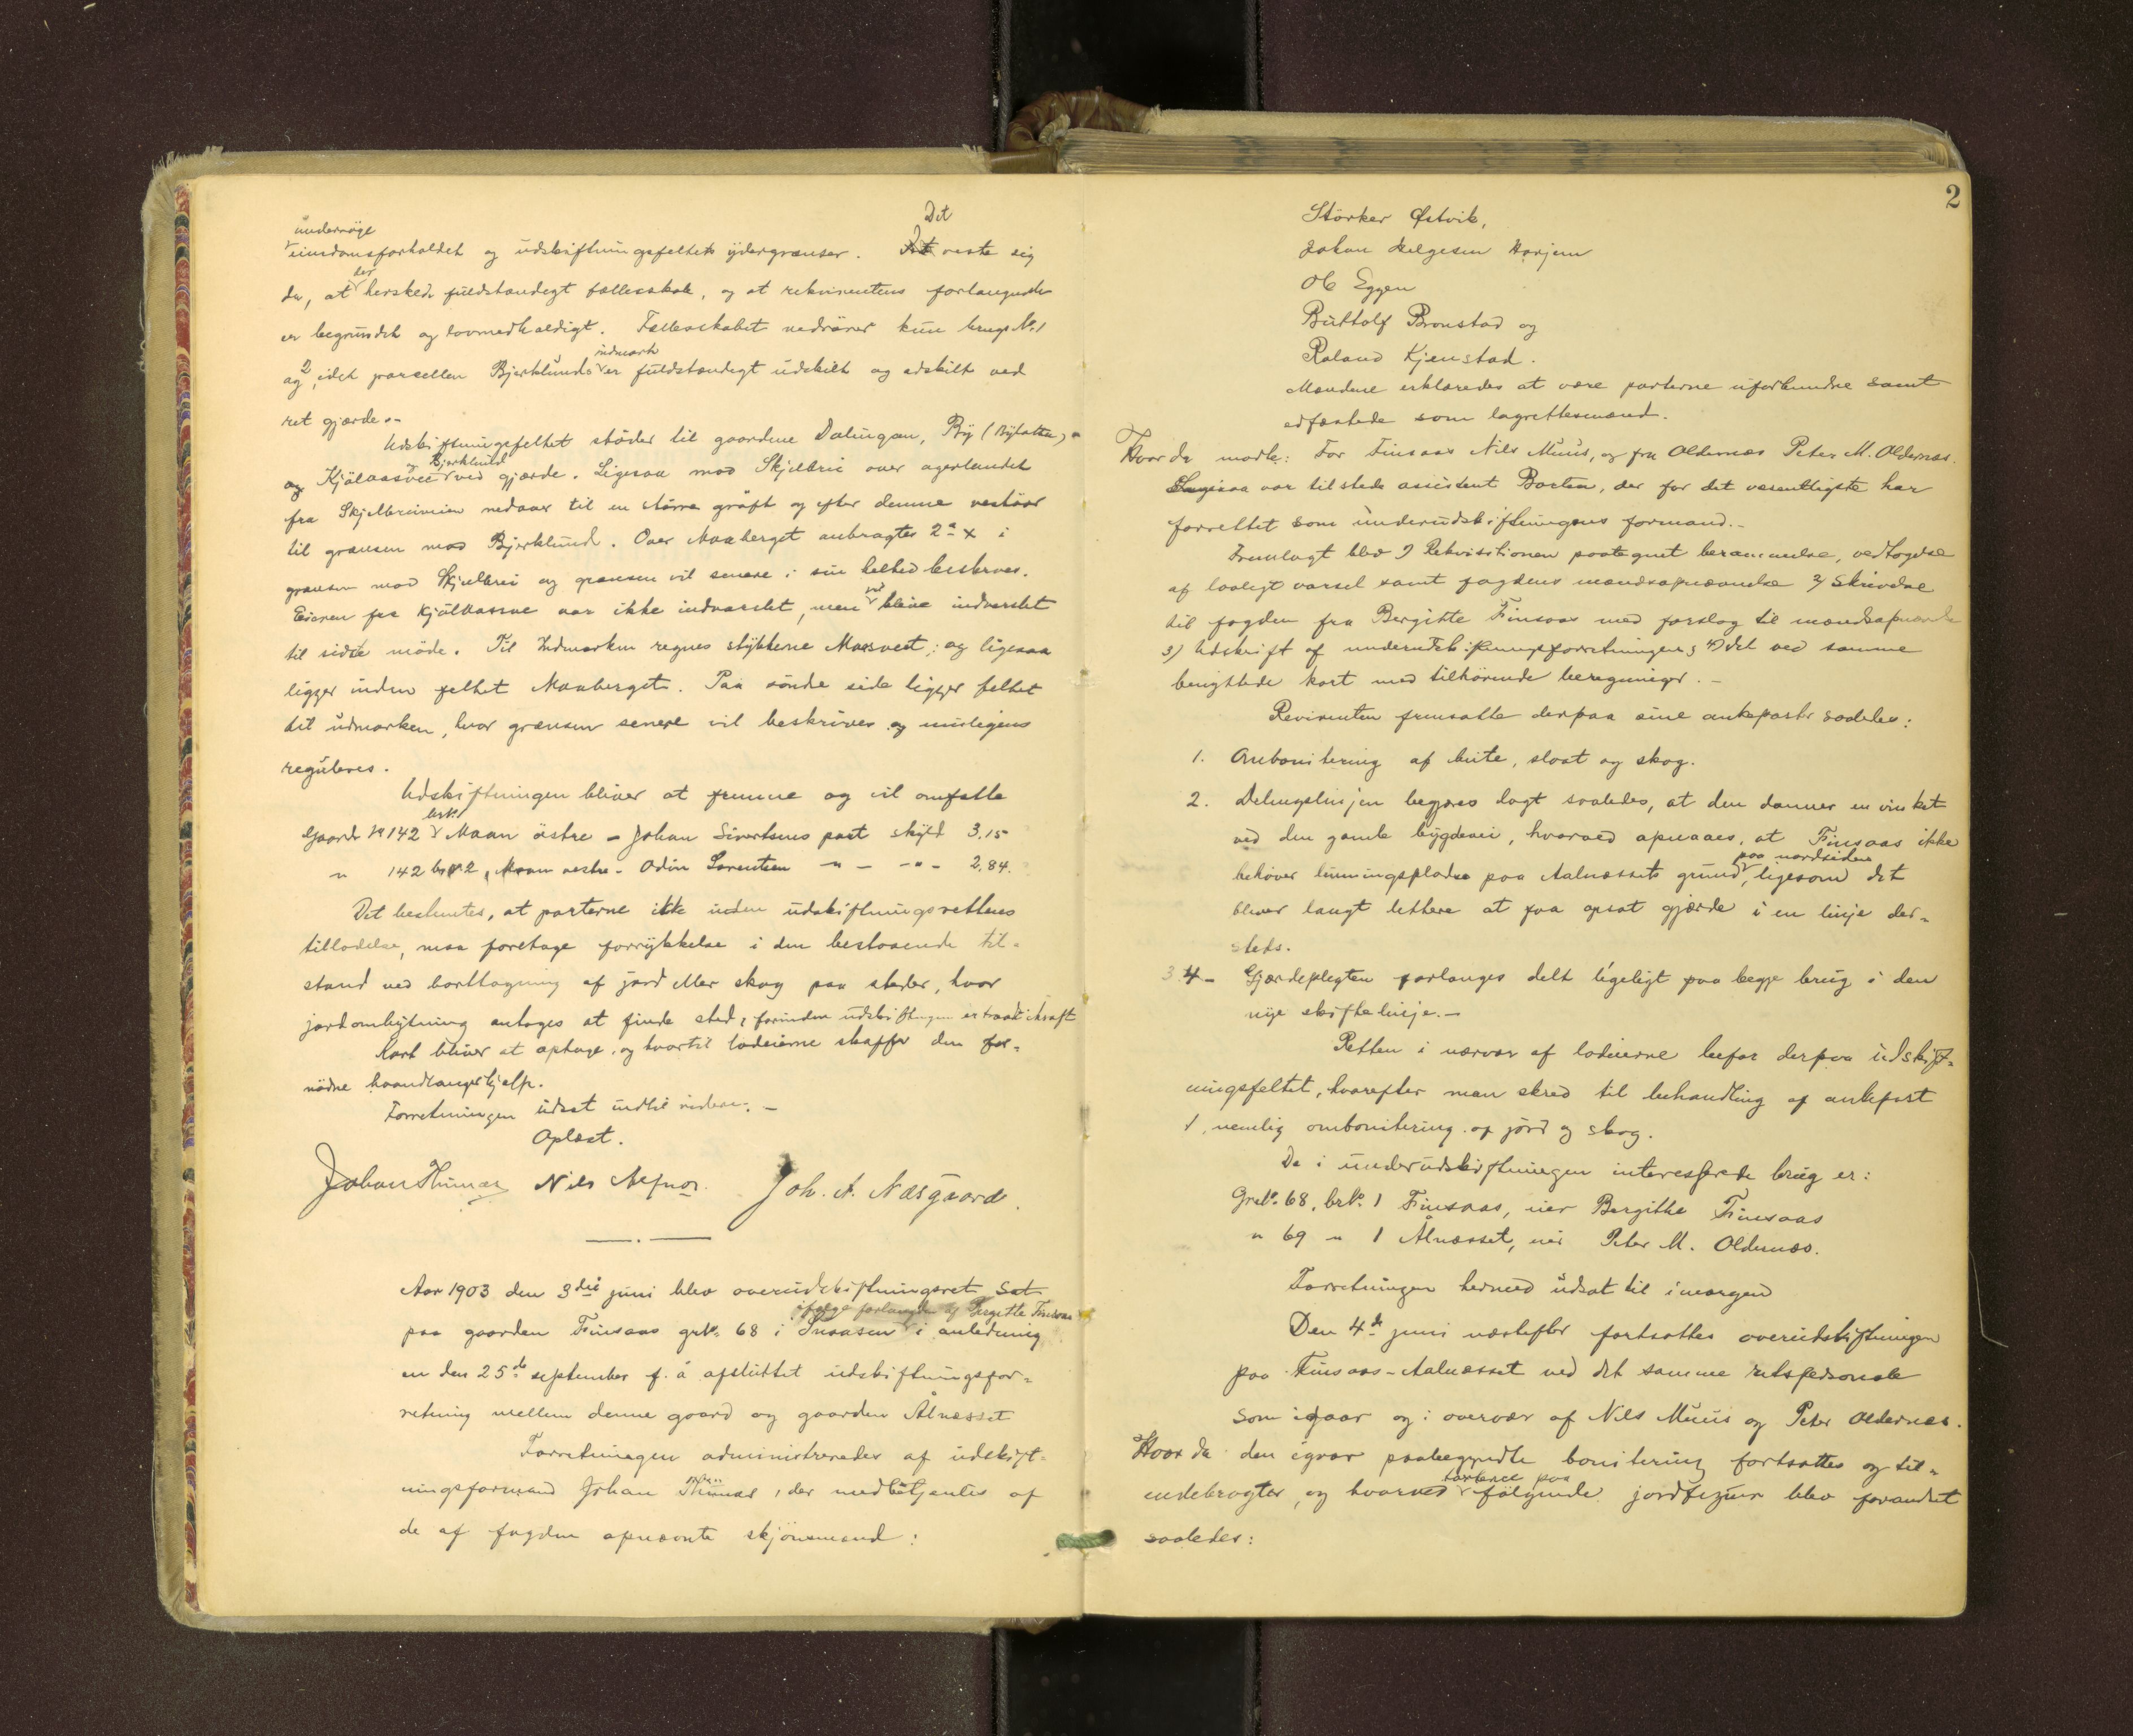 undersøge
eiendomsforholdet og udskiftningsfeltets ydergrænser. Det viste sig
da, at der hersked fuldstændigt fællesskab, og at rekvirentens forlangende
er begrundet og lovmedholdigt. Fællesskabet vedrører kun brugs No 1
og 2, idet parcellen Bjerklunds indmark er fuldstændigt udskilt og adskilt ved
ret gjærde.-
Udskiftningsfeltet støder til gaardene Dalingan, By (Bylatta)
og Kjølaasvee og Bjerklund ved gjærde. Ligesaa mod Skjelbrei over agerlandet
fra Skjelbreiveien nedover til en større grøft og efter denne vestover
til grænsen mod Bjerklund. Over Maaberget anbragtes 2 x i
grænsen mod Skjelbrei og grænsen vil senere i sin helhed beskrives.
Eieren fra Kjølaasvee var ikke indvarslet, men vil blive indvarslet
til sidste møde. Til Indmarken regnes stykkerne Maasveet; og ligesaa
ligger inden feltet Maaberget. Paa søndre side ligger feltet
til udmarken, hvor grænsen senere vil beskrives og muligens
reguleres.
Udskiftningen bliver at fremme og vil omfatte
Gaards No 142 brk. 1 Maan østre - Johan Sivertsens part skyld 3.15
" 142 br No 2, Maan vestre - Odin Lorentsen - " - - " - 2.84.
Det bestemtes, at parterne ikke uden udskiftningsrettens
tilladelse, maa foretage forrykkelse i den bestaaende til=
stand ved borttagning af jord eller skog paa steder, hvor
jordombytning antages at finde sted, forinden udskiftningen er traadt i kraft
Kart bliver at optage, og hvortil lodeierne skaffer den for=
nødne haandlangerhjelp.
Forretningen udsat indtil videre. -
Oplæst.
Johan Thinnes Nils Aefnor. Joh. A. Næsgaard.
Aar 1903 den 3die juni blev overudskiftningsret sat
ifølge forlangende af Bergitte Finsaas
paa gaarden Finsaas grNo. 68 i Snaasen i anledning
en den 25de september f. å afsluttet udskiftningsfor=
retning mellem denne gaard og gaarden Ålnæsset
Forretningen administreredes af udskift=
ningsformand Johan Thinnes, der medbetjentes af
de af fogden opnævnte skjønsmænd:
2
Störker Østvik,
Johan Helgesen Horjem
Ole Eggen
Buttolf Bronstad og
Roland Kjenstad.
Mændene erklæredes at være parterne uforbundne samt
edfæstede som lagrettesmænd.
Hvor da mødte: For Finsaas Nils Muus, og fra Oldernæs Peter M. Oldernæs.
Ligesaa var tilstede assistent Borten, der for det væsentligste har
forrettet som underudskiftningens formand.-
Fremlagt blev 1) Rekvisitionen paategnet berammelse, vedtagelse
af lovligt varsel samt fogdens mandsopnævnelse 2) Skrivelse
til fogden fra Bergitte Finsaas med forslag til mandsopnævnte
3) Udskrift af underudskiftningsforretningen, 4) det ved samme
benyttede kart med tilhørende beregninger. -
Revirenten fremsatte derpaa sine ankeposter saaledes:
1. Ombonitering af beite, slaat og skog.
2. Delingslinjen begjæres lagt saaledes, at den danner en vinkel
ved den gamle bygdevei, hvorved opnaaes, at Finsaas ikke
behøver lunningsplads paa Aalnæssets grund paa nordsiden, ligesom det
bliver langt lettere at faa opsat gjærde i en linje der=
steds.
3 4 - Gjærdepligten forlanges delt ligeligt paa begge brug i den
nye skiftelinje. -
Retten i nærvær af lodeierne befor derpaa udskift=
ningsfeltet, hvorefter man skred til behandling af ankepost
1, nemlig ombonitering af jord og skog.
De i underudskiftningen interesserede brug er:
GrNo. 68, brNo. 1 Finsaas, eier Bergitte Finsaas
" 69 " 1 Ålnæsset, eier Peter M. Oldernæs.
Forretningen hermed udsat til imorgen
Den 4de juni næstefter fortsattes overudskiftningen
paa Finsaas-Aalnæsset ved det samme retspersonale
som igaar og i overvær af Nils Muus og Peter Oldernæs.
Hvor da den igaar paabegyndte bonitering fortsattes og til=
endebragtes, og hvorved taxterne paa følgende jordfigurer blev forandret
saaledes: